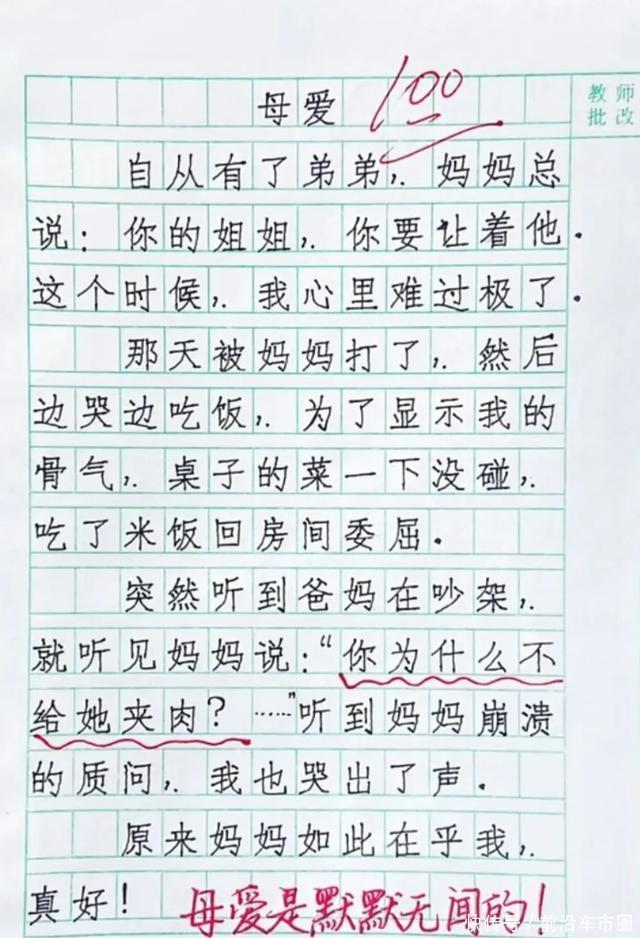 母爱
100
教师
批改
自从有了弟弟，妈妈总
说：你的姐姐，你要让着他。
这个时候，我心里难过极了。
那天被妈妈打了，然后
边哭边吃饭，为了显示我的
骨气，桌子的菜一下没碰，
吃了米饭回房间委屈。
突然听到爸妈在吵架，
就听见妈妈说：“你为什么不
给她夹肉？……”听到妈妈崩溃
的质问，我也哭出了声。
原来妈妈如此在乎我，
真好！
母爱是默默无间的！
快传号／前沿车市圈